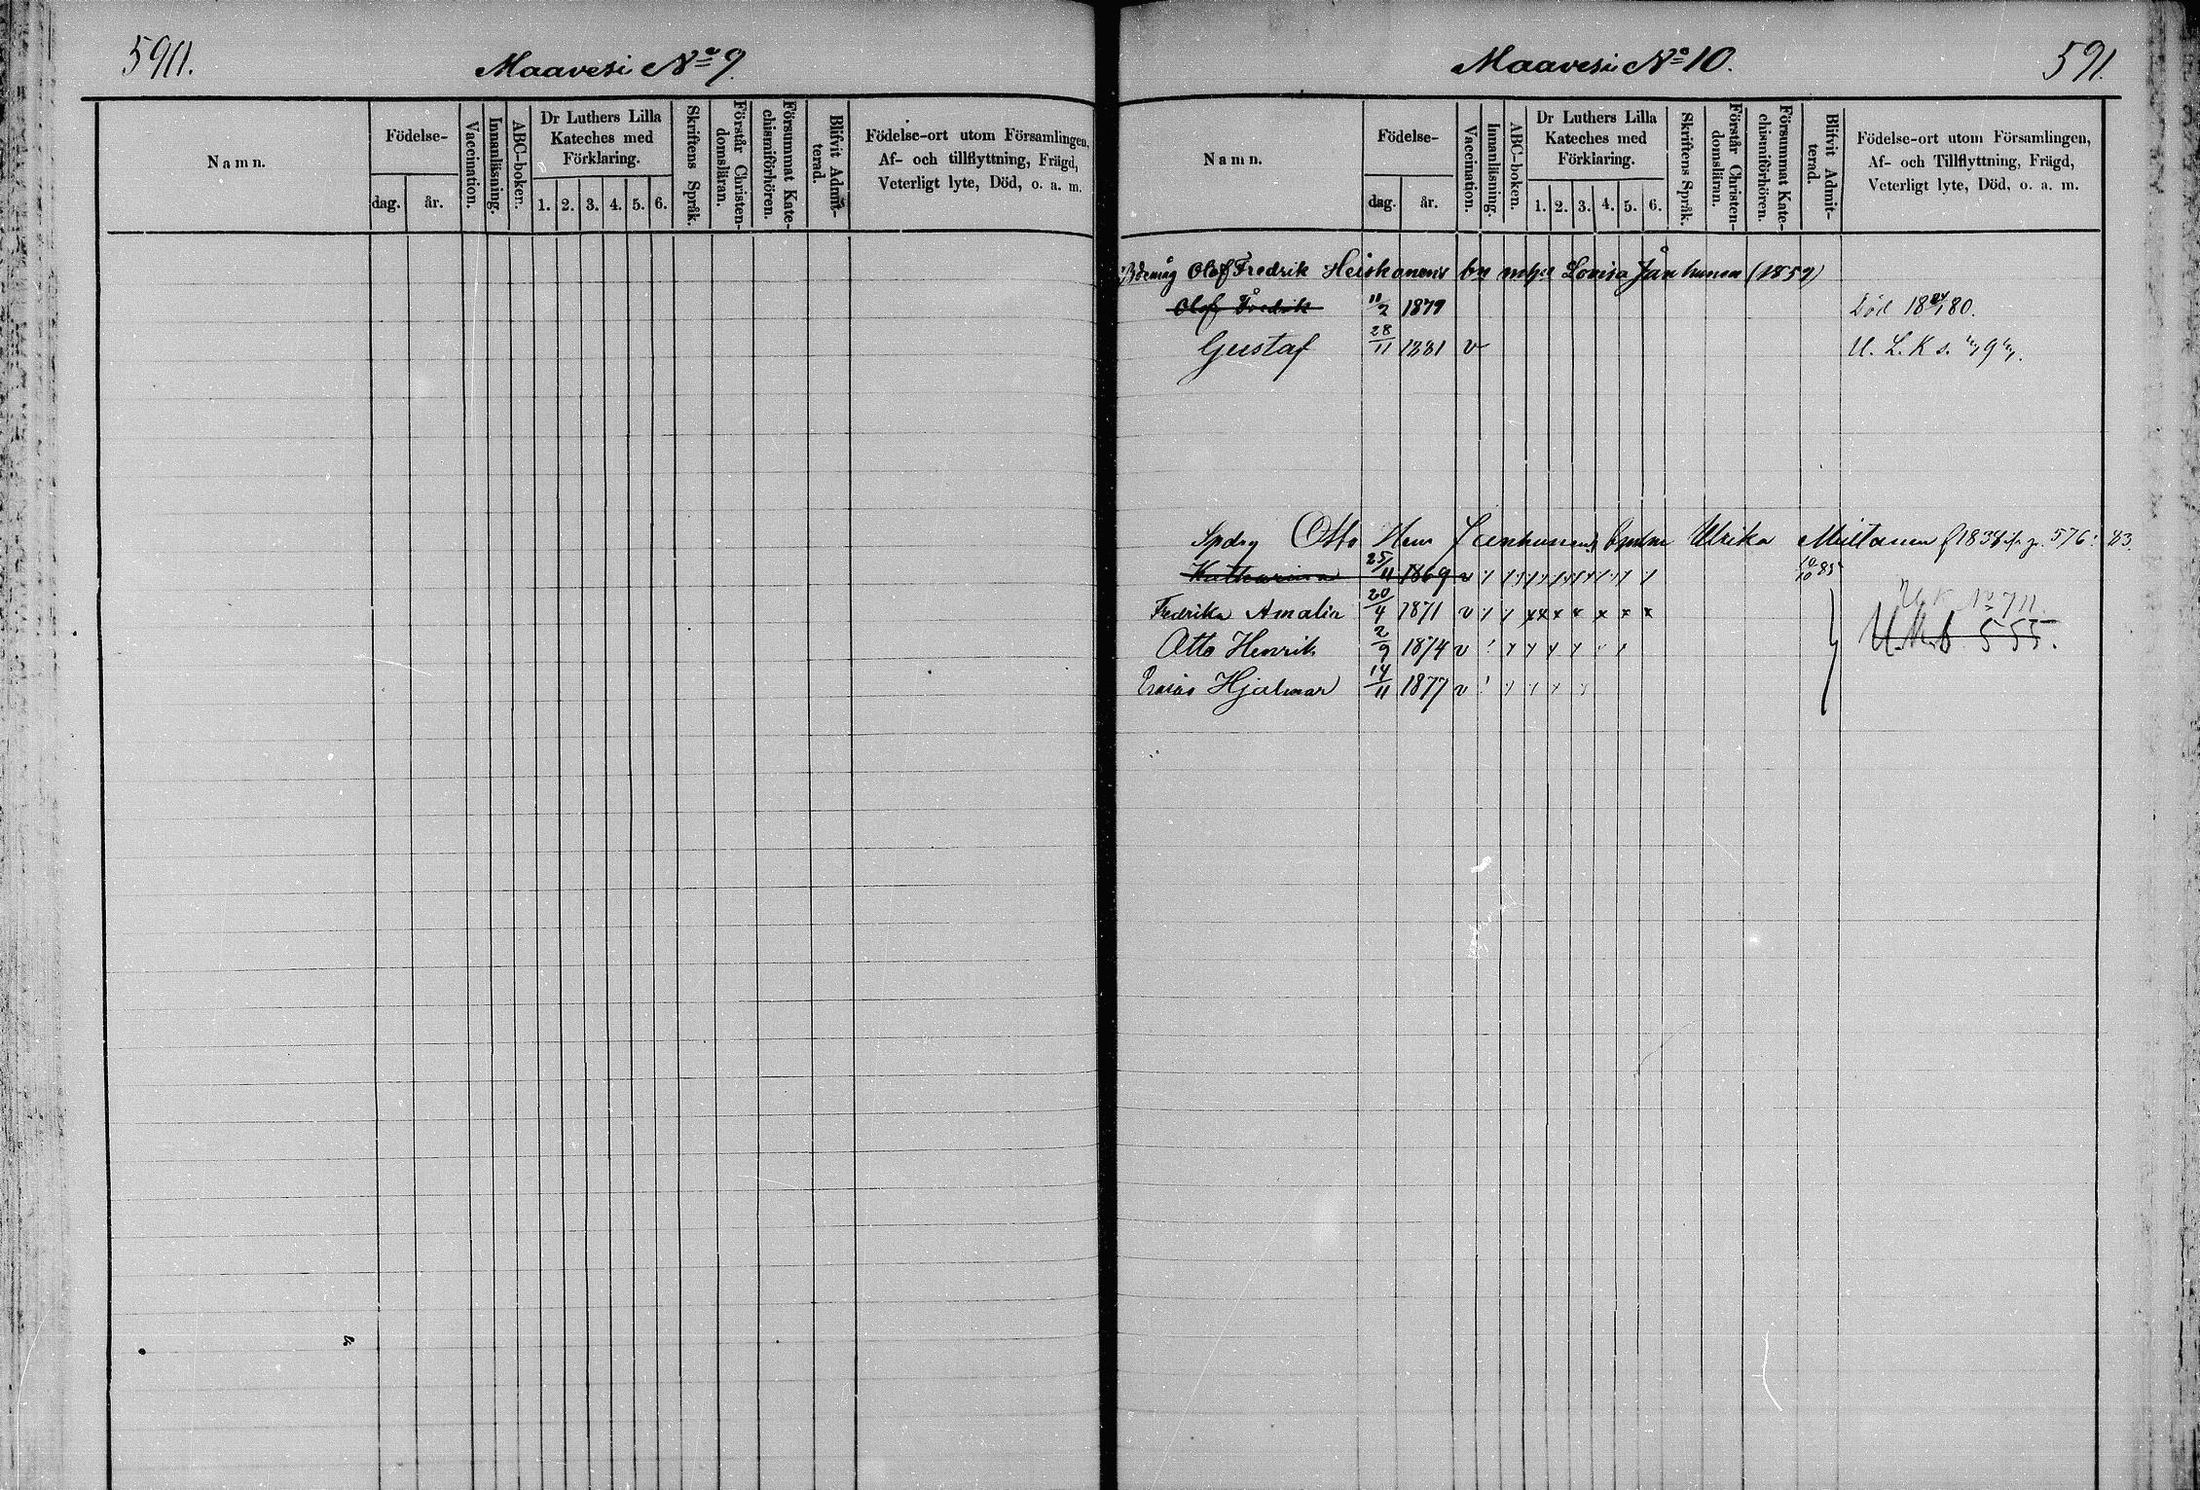 590.
Maavesi No 9.
Namn.
Födelse-
dag.
år.
Vaccination.
Innanläsning.
ABC-boken.
Dr Luthers Lilla
Kateches med
Förklaring.
1. 2. 3. 4. 5. 6.
Skriftens Språk.
Förstår Christen-
domsläran.
Försummat Kate-
chismiförhören.
Blifvit Admit-
terad.
Födelse-ort utom Församlingen,
Af- och tillflyttning, Frägd,
Veterligt lyte, Död, o. a. m.
Maavesi No 10.
591.
Namn.
Födelse-
dag.
år.
Vaccination.
Innanläsning.
ABC-boken.
Dr Luthers Lilla
Kateches med
Förklaring.
1. 2. 3. 4. 5. 6.
Skriftens Språk.
Förstår Christen-
domsläran.
Försummat Kate-
chismiförhören.
Blifvit Admit-
terad.
Födelse-ort utom Församlingen,
Af- och Tillflyttning, Frägd,
Veterligt lyte, Död, o. a. m.
Olof Fredrik Heiskanens bn Lovisa
Olof Fredrik 11/2 1879 Död 80.
Gustaf 28/11 1881 v
Otto Ulrika 1838 576 83.
Katharina 25/11 1869 v 10/10 85
Fredrika Amalia 20/4 1871 v x x x x x x x
No 711.
Otto Henrik 2/9 1874 v
555.
Hjalmar 14/11 1877 v